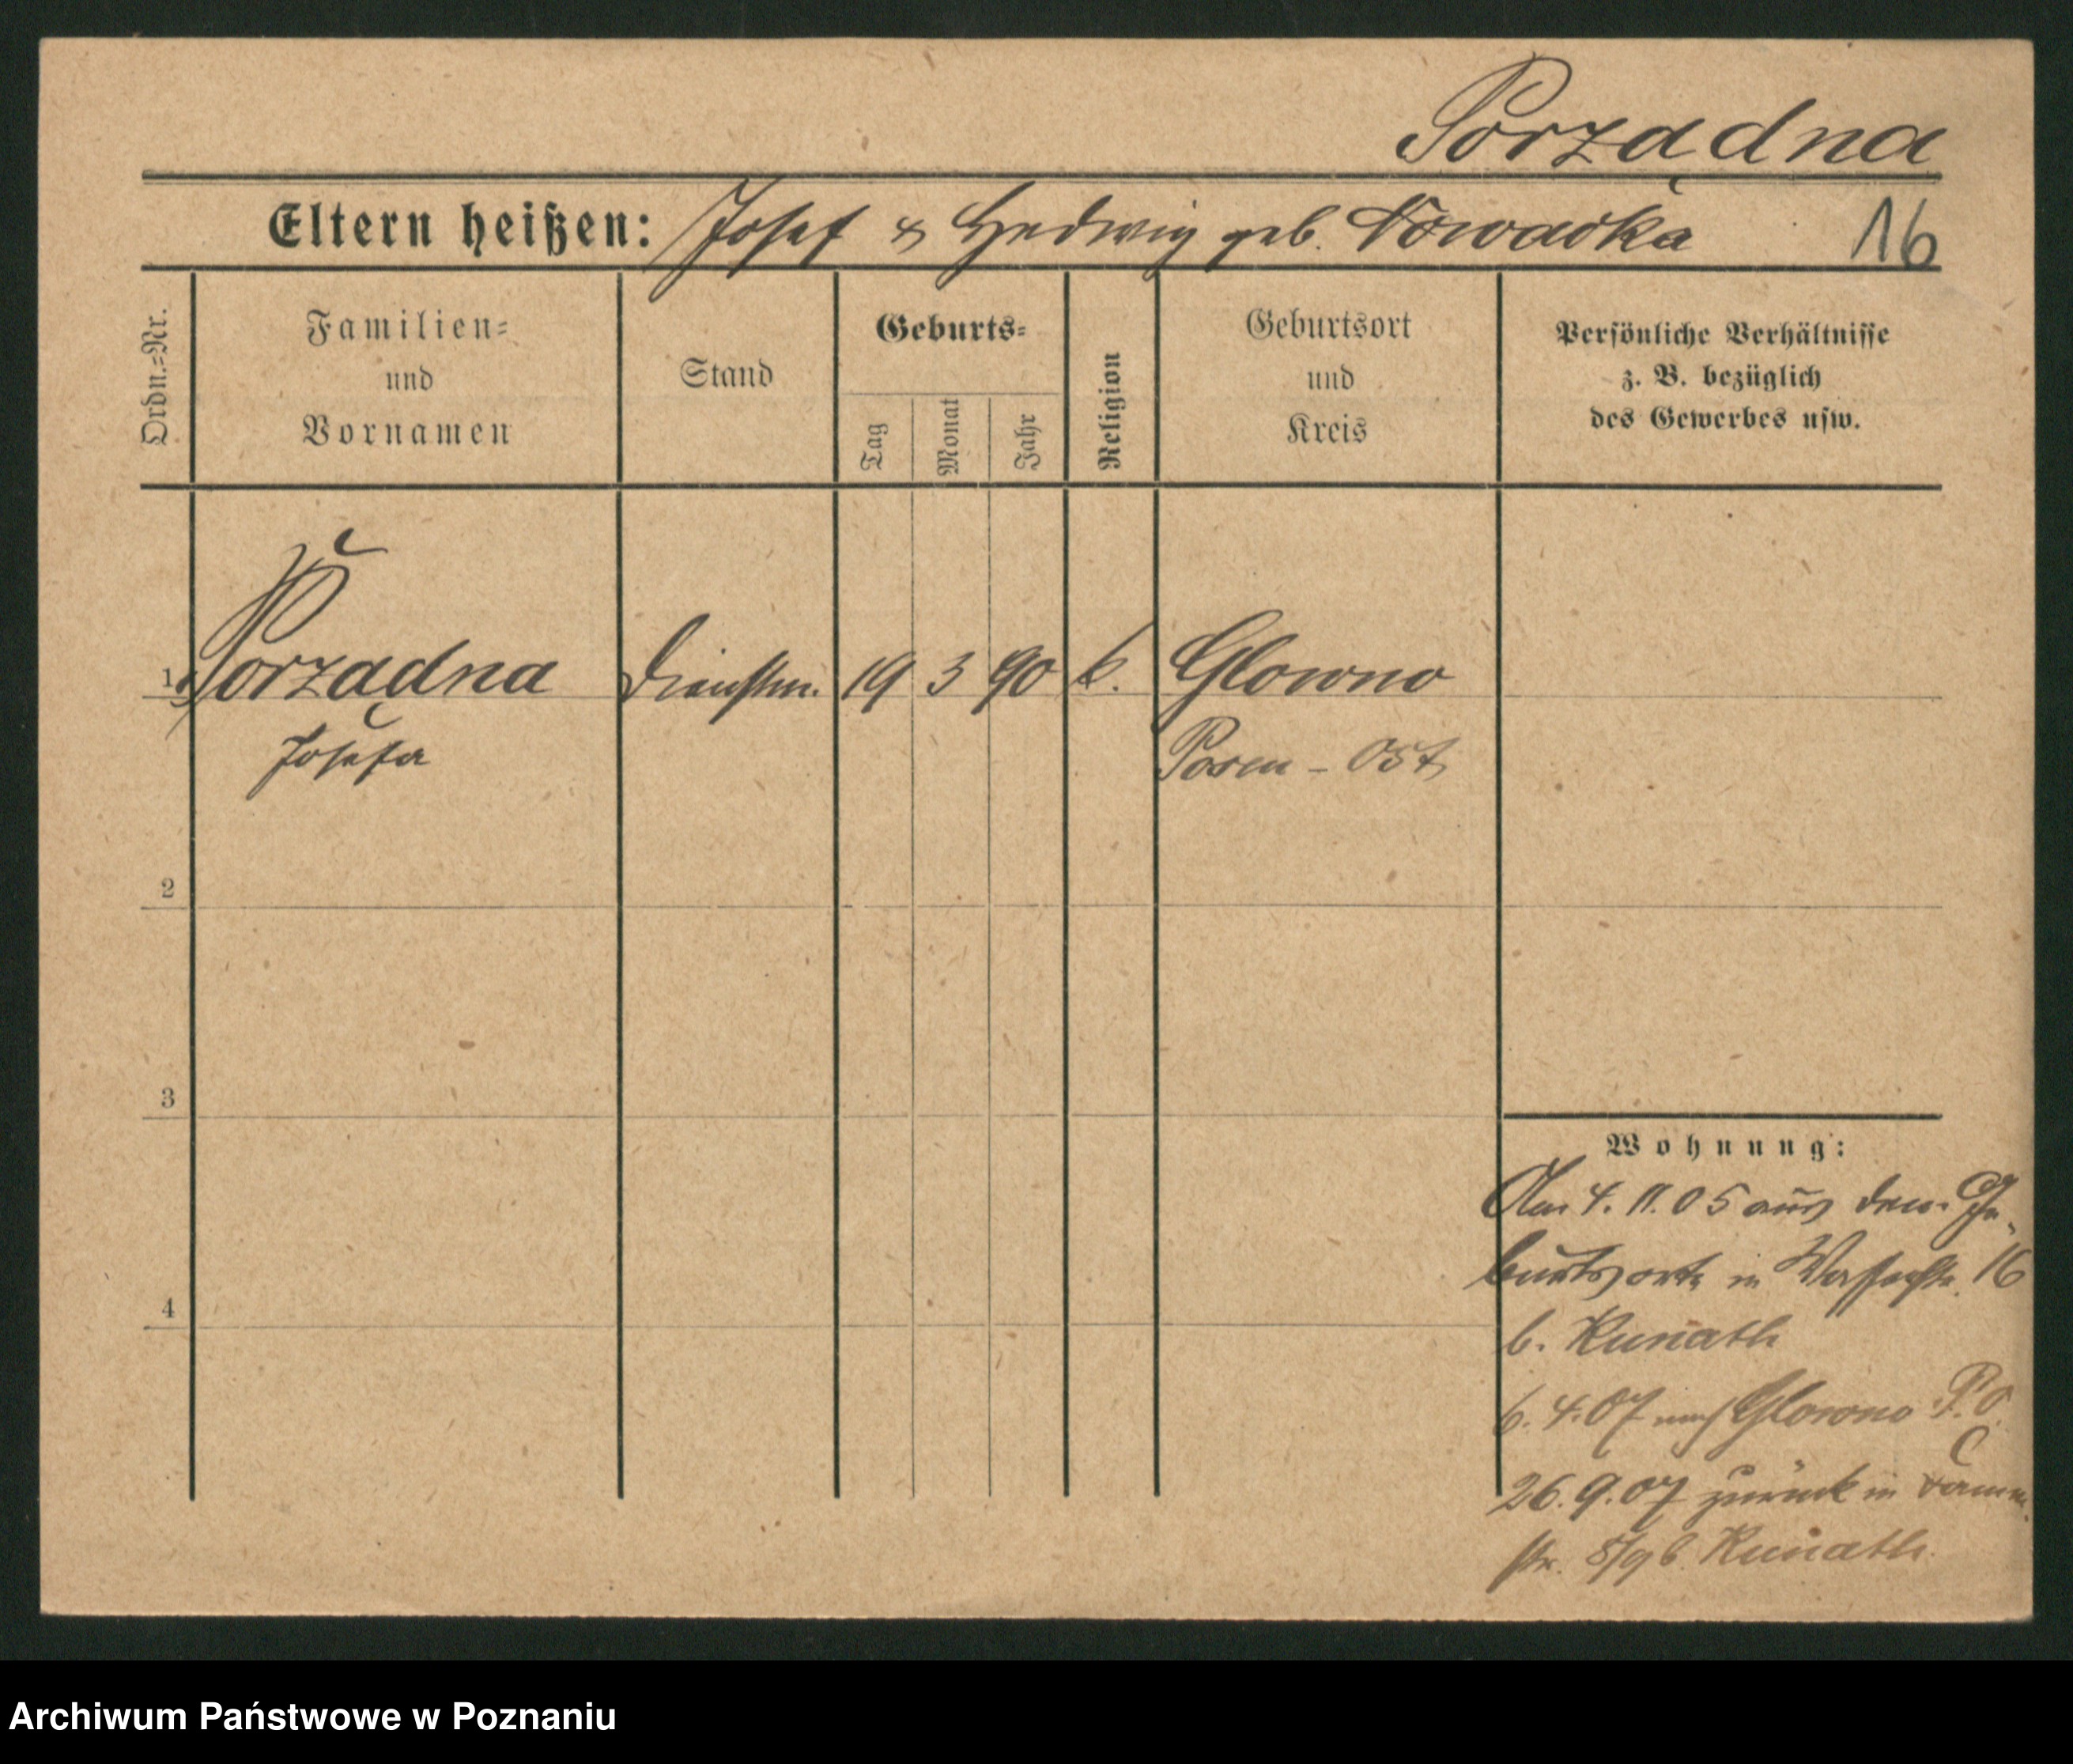 Porządna
Eltern heißen: Josef & Hedwig geb. Nowacka 16
Ordn.=Nr.
Familien=
und
Vornamen
Stand
Geburts=
Tag
Monat
Jahr
Religion
Geburtsort
und
Kreis
Persönliche Verhältnisse
z. B. bezüglich
des Gewerbes usw.
1 Porządna Dienstm. 19 3 90 k. Glowno
Josefa Posen - Ost
2
3
4
Wohnung:
Am 4. 11. 05 aus dem Ge-
burtsorte in 16
b. Kunath
6. 4. 07 nach Glowno P. O.
26. 9. 07 zurück in
str. 8/9 b. Kunath.
Archiwum Państwowe w Poznaniu